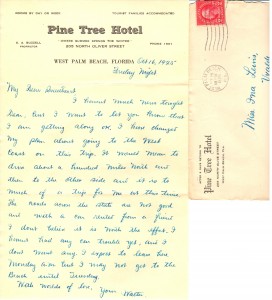 ROOMS BY DAY OR WEEK
TOURIST FAMILIES ACCOMMODATED
Pine Tree Hotel
"WHERE SUMMER SPENDS THE WINTER"
205 NORTH OLIVER STREET
PROPRIETOR
PHONE
WEST PALM BEACH, FLORIDA Oct 16, 1935
Sunday Night
My Dear Sweetheart
I Haven't much news tonight
Dear, but I want to let you know that
I am getting along OK. I Have changed
My plan about going to the West
Coast on this Trip. It would Mean to
drive about a hundred Miles North and
then to the Other Side and it is to
Much of a trip for Me at this time
The roads across the State are not Good
and with a car rented from a friend
I dont believe it is Worth the effort. I
Haven't Had any Car Trouble yet, and I
don't Want any. I expect to leave here
Monday a.m but I may not get to the
Beach until Tuesday.
With worlds of love, Your Walter
Miss Ina
Pine Tree Hotel